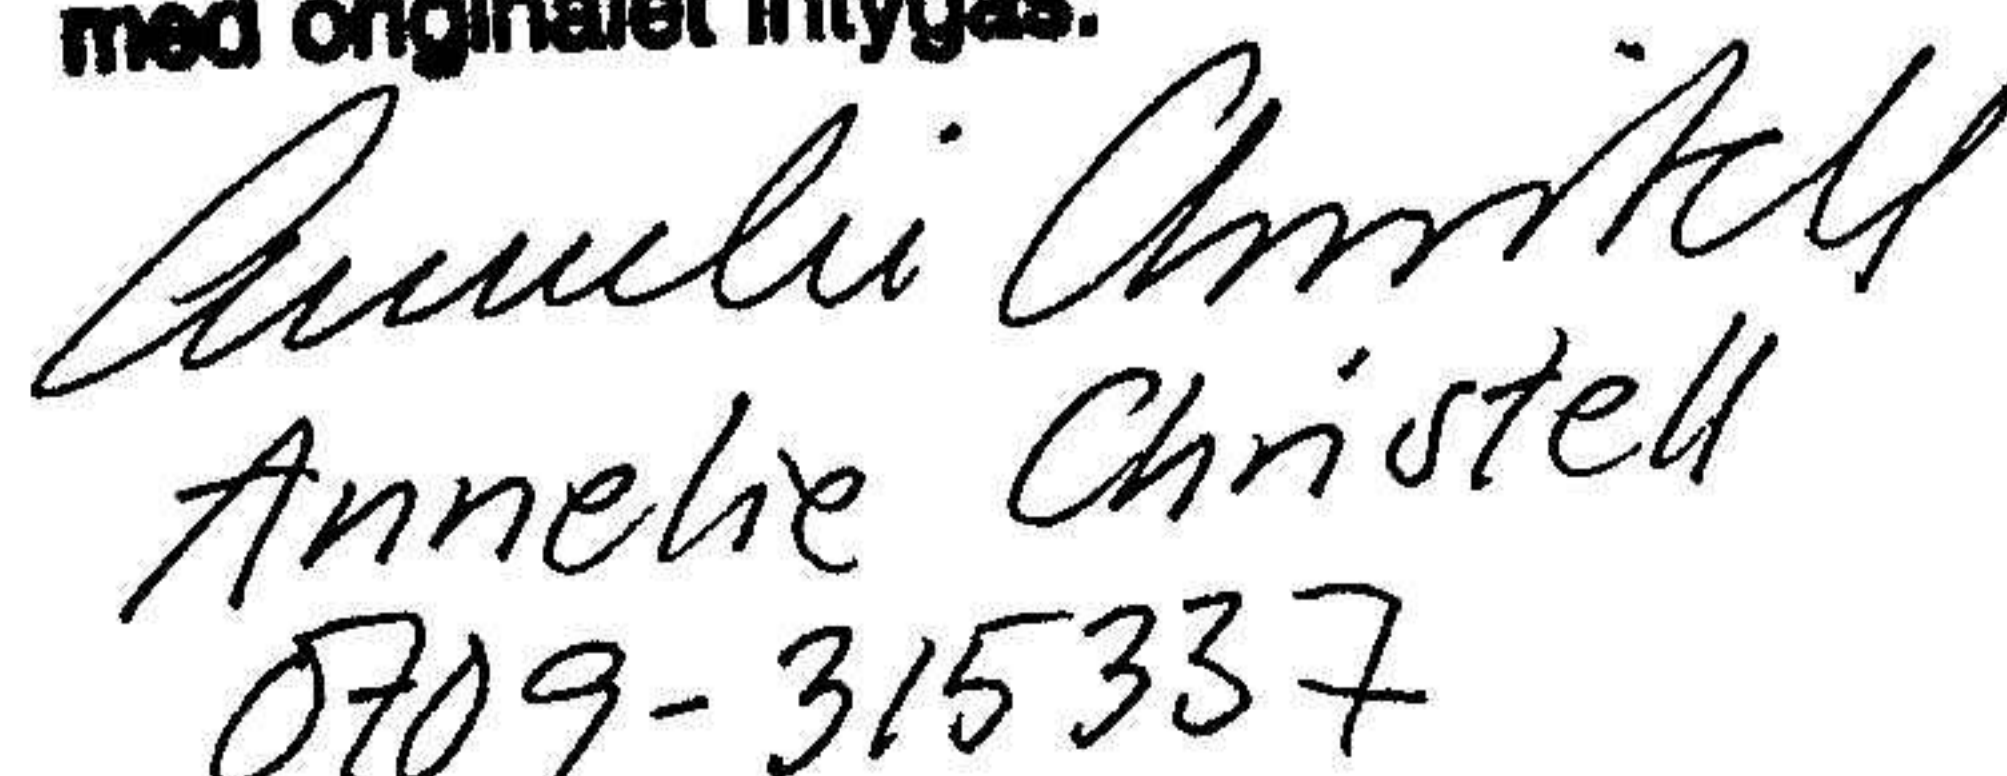 med originalet intygas.
Annelie Christell
Annelie Christell
0709-315337